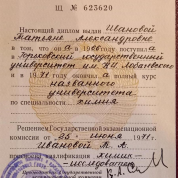 Щ № 625620
Настоящий диплом выдан Ивановой
Татьяне Александровне
в том, что она в 1966 году поступила
в Горьковский государственный
университет им. Н.И. Лобачевского
и в 1971 году окончила полный курс
названного
университета
по специальности химия
Решением Государственной экзаменационной
комиссии от 25 июня 1971 г.
Ивановой Т. А.
присвоена квалификация